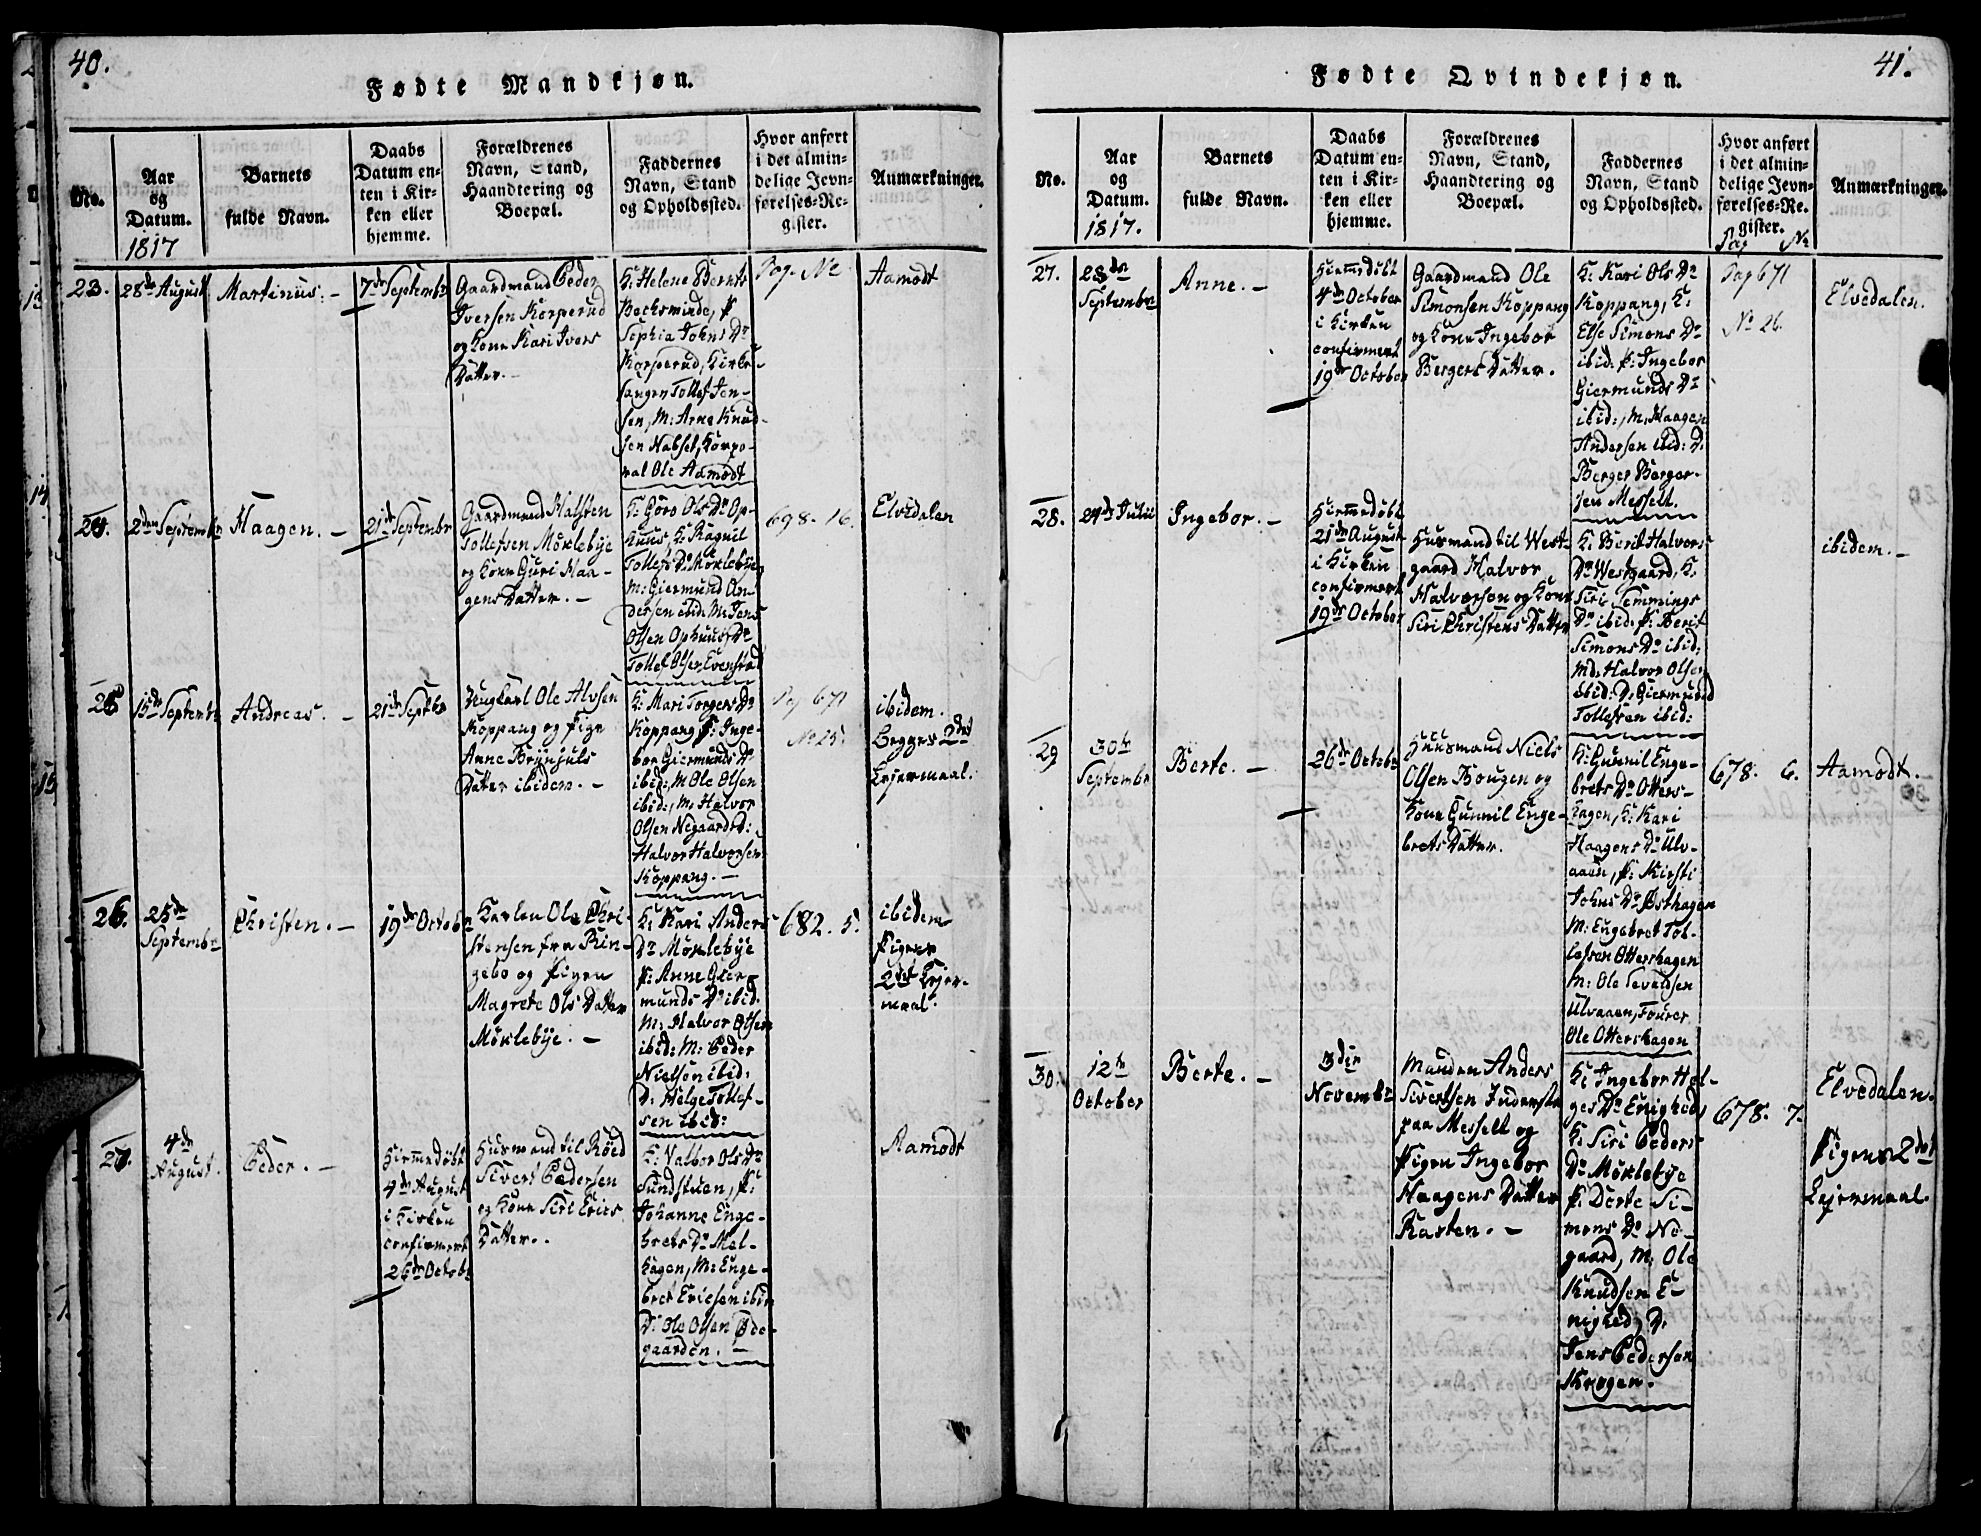 40.
Fødte Mandkjøn.
No.
Aar
og
Datum.
1817
Barnets
fulde Navn.
Daabs
Datum en-
ten i Kir-
ken eller
hjemme.
Forældrenes
Navn, Stand,
Haandtering og
Boepæl.
Faddernes
Navn, Stand
og Opholdssted.
Hvor anført
i det almin-
delige Jevn-
førelses-Re-
gister.
Anmærkninger.
23.
28de August
Martinus. -
7de Septembr
Gaardmand Peder
Iversen Korperud
og Kone Kari Ivers
Datter. -
K: Helene Bernts
Bechsminde, P
Sophia Johns Dr
Korperud, Kirke-
sanger Tollef Jen-
sen, M: Arne Knud-
sen Nabset, Korpo-
ral Ole Aamodt
Pag. No
Aamodt
24.
2den Septembr
Haagen. -
21de Septembr
Gaardmand Halsten
Tollefsen Möklebÿe
og Kone Guri Haa-
gens Datter. -
K: Goro Ols Dr Op-
huus, K: Ragnil
Tollefs Dr Möklebye,
M: Giermund An-
dersen ibid: M: Jens
Olsen Ophuus Dr
Tollef Olsen Evenstad
698. 16.
Elvedalen
25
15de Septembr
Andreas. -
21de Septbr
Ungkarl Ole Alvsen
Koppang og Pige
Anne Brynjuls
Datter ibidem. -
K: Mari Torgers Dr
Koppang P: Inge-
bor Giermunds Dr
ibid:, M Ole Olsen
ibid:, M. Halvor
Olsen Negaard D:
Halvor Halvorsen
Koppang. -
Pag 671
No 25.
ibidem.
Begges 2det
Lejermaal.
26.
25de
Septembr
Christen. -
19de Octobr
Karlen Ole Chri-
stensen fra Rin-
gebo og Pigen
Magrete Ols Datter
Möklebÿe. -
K: Kari Anders
Dr Möklebÿe
P: Anne Gier-
munds Dr ibid.
M: Halvor Olsen
ibid: M: Peder
Nielsen ibid:
D: Helge Tollef-
sen ibid:
682. 5.
ibidem
Pigens
2det Lejer-
maal.
27.
4de
August.
Peder. -
Hiemmedöbt
4de August
i Kirken
confirmert
26de Octobr
Husmand til Röed
Sivert Pedersen
og Kone Siri Erics
Datter.
K: Valbor Ols Dr
Sundstuen, P:
Johanne Enge-
brets Dr Mel-
hagen, M: Enge-
bret Ericsen ibid
D: Ole Olsen Öde-
gaarden. -
Aamodt
41.
Fødte Qvindekjøn.
No.
Aar
og
Datum.
1817.
Barnets
fulde Navn.
Daabs
Datum en-
ten i Kir-
ken eller
hjemme.
Forældrenes
Navn, Stand,
Haandtering og
Boepæl.
Faddernes
Navn, Stand
og Opholdssted.
Hvor anført
i det almin-
delige Jevn-
førelses-Re-
gister.
Pag No
Anmærkninger.
27.
28de
Septembr
Anne. -
Hjemdöbt
4de October
i Kirken
confirmert
19de October
Gaardmand Ole
Simonsen Koppang
og Kone Ingebor
Bergers Datter.
K: Kari Ols Dr
Koppang, K:
Else Simons Dr
ibid: P: Ingebor
Giermunds Dr
ibid:, M: Haagen
Andersen ibid: D:
Berger Berger-
sen Messelt.
Pag 671
No 26.
Elvedalen.
28.
24de Julii
Ingebor. -
Hiemmedöbt
21de August
i Kirken
confirmert
19de October
Husmand til West-
gaard Halvor
Halvorsen og Kone
Siri Christens Datter
K: Berit Halvors
Dr Westgaard, K:
Siri Semmings
Dr ibid: P: Berit
Simons Dr ibid:
M: Halvor Olsen
ibid: D: Giermund
Tollefsen ibid:
ibidem. -
29
30te
Septembr
Berte. -
26de Octobr
Husmand Niels
Olsen Hougen og
Kone Gunnil Enge-
brets Datter.
K: Gunnil Enge-
brets Dr Otters-
hagen, K: Kari
Haagens Dr Ulv-
aaen, P: Kirsti
Johns Dr Østhagen
M: Engebret Tol-
lefsen Ottershagen
M: Ole Tevaldsen
Ulvaaen, Fourer
Ole Ottershagen
678. 6.
Aamodt.
30.
12te
October
Berte. -
3die
Novembr
Manden Anders
Sivertsen Inderste
paa Messelt og
Pigen Ingebor
Haagens Datter
Kasten. -
K: Ingebor Hel-
ges Dr Enighed
K: Siri Peders
Dr Möklebÿe
P: Dorte Si-
mons Dr Ne-
gaard, M: Ole
Knudsen E-
nighed, D:
Jens Pedersen
Krogen.
678. 7.
Elvedalen.
Pigens 2det
Lejermaal.